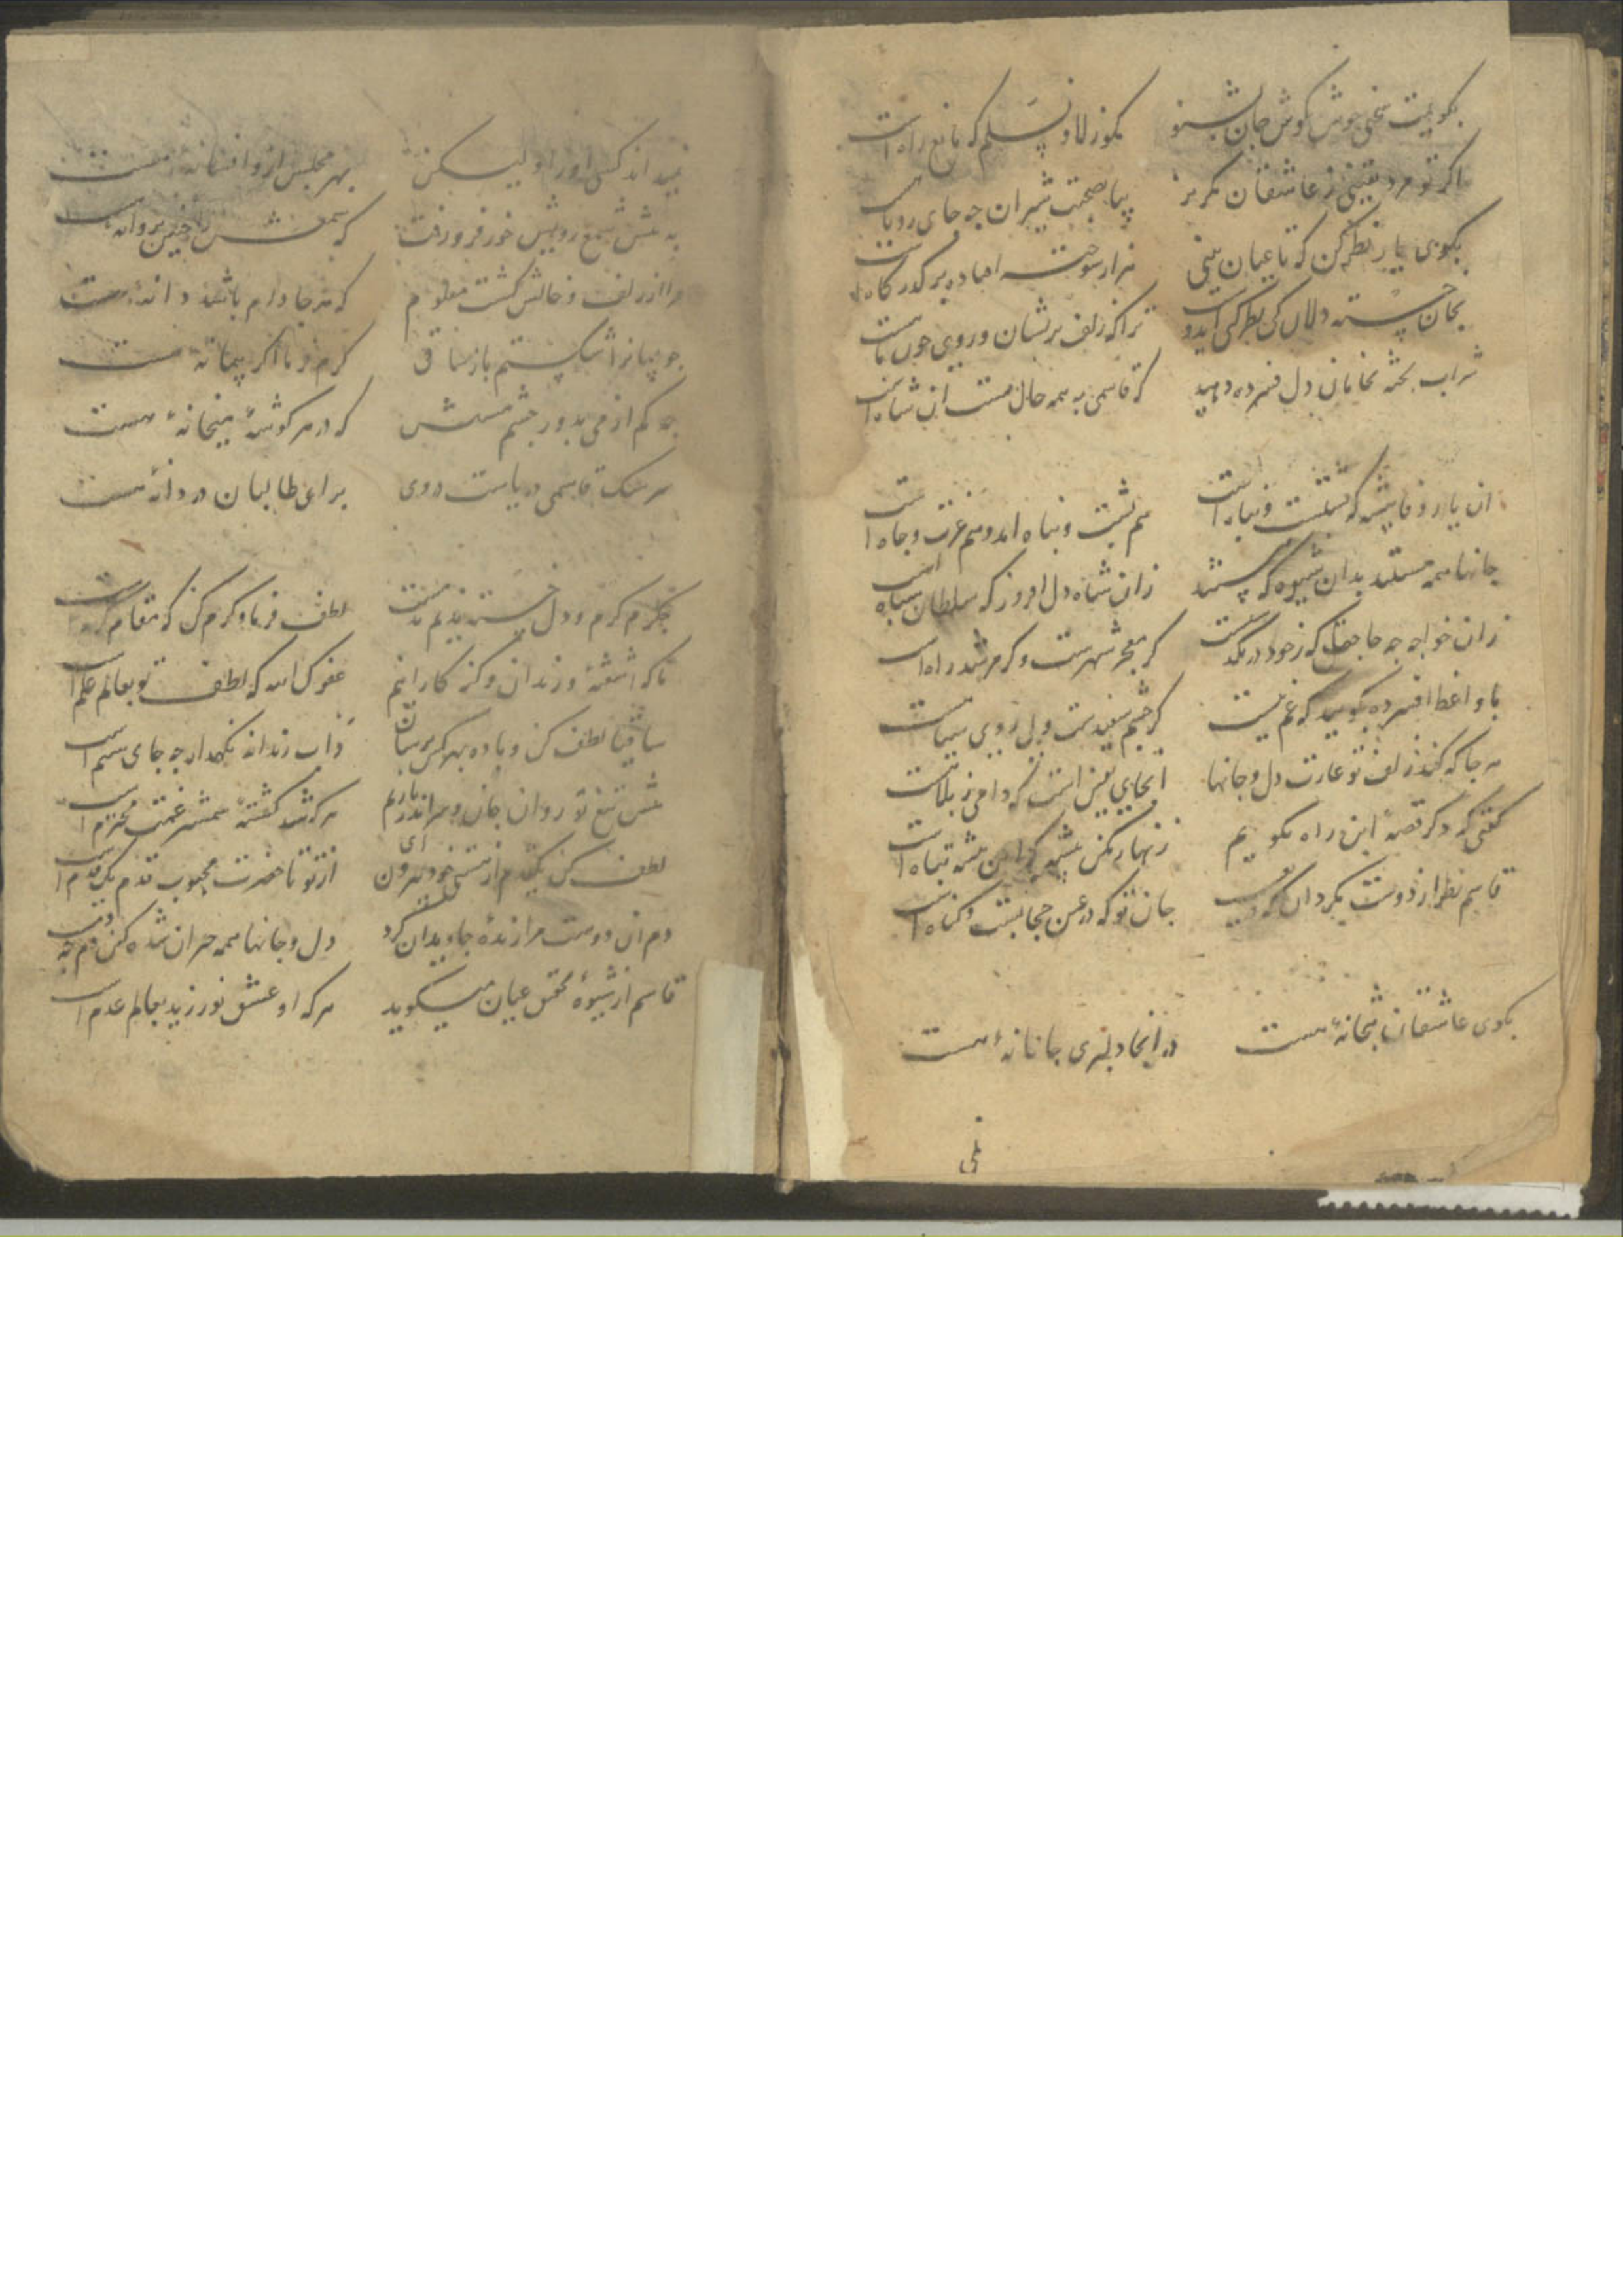 بکویمت سخنی خوش بکوش جان بشنو
مکوز لا و نسلم که مانع راه است
اکر تو مرد یقینی ز عاشقان مکریز
بیا بصحبت شیران چه جای روباست
بکوی یار نظر کن که تا عیان بینی
هزار سوخته افتاده بر کذرکاه است
بجان خسته دلان کی نظر کنی
ترا که زلف پریشان و روی چون ماهست
شراب پخته بخامان دل فسرده دهید
که قاسمی به همه حال مست ان شاه است
ان یار وفاپیشه که پشتست و پناه است
هم پشت و پناه امد و هم عزت و جاه است
جانها همه مستند بدان شیوه که هستند
زان شاه دل افروز که سلطان سپاه است
زان خواجه چه حاصل که ز خود در نکذشت
کر مفخر شهرست و کر مرشد راه است
با واعظ افسرده بکویید که غم نیست
کر جبه سفیدست ولی روی سیاست
هر جا که کند زلف تو غارت دل و جانها
انجا یقین است که دامی ز بلاست
کفتی که دکر قصه این راه نکوییم
زنهار مکن پیشه که این پیشه تباه است
قاسم نظر از دوست مکردان که
جان تو که در عین حجابست و کناه است
بکوی عاشقان بتخانه هست
در انجا دلبری جانانه هست
نمی
نمیداند کسی او را ولیکن
بهر مجلس ازو افسانه هست
به پیش شمع رویش خور فرو رفت
که شمعش را چنین پروانه هست
مرا از زلف و خالش کشت معلوم
که هر جا دام باشد دانه هست
چو پیمانرا شکستم باز ساقی
کرم فرما اکر پیمانه هست
چه کم از می بدور چشم مستش
که در هر کوشه میخانه هست
سرشک قاسمی دریاست دروی
برای طالبان دردانه هست
جکرم کرم و دل خسته ندیم ندمست
لطف فرما و کرم کن که مقام کرم است
ما که اشفته و رندان و کنه کارانیم
عفو کن الله که لطف تو بعالم علم است
ساقیا لطف کن و باده بهر کس برسان
داب رندانه نکهدار چه جای ستم است
پیش تیغ تو روان جان و سر اندازیم
هر که شد کشته شمشیر غمت محترم است
لطف کن یکقدم از هستی خود بیرون ای
از تو تا حضرت محبوب قدم یک قدم است
دم ان دوست مرا زنده جاویدان کرد
دل و جانها همه حیران شده کین دم چه دمست
قاسم از شیوه تحقیق عیان میکوید
هر که او عشق نورزید بعالم عدم است